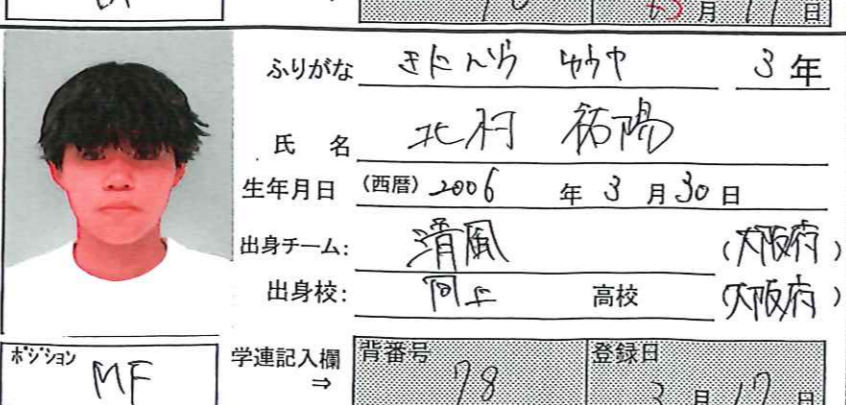 月 日
ふりがな きたむら ゆうや 3年
氏 名 北村 祐陽
生年月日 (西暦) 2006 年 3 月 30 日
出身チーム: 清風 (大阪府)
出身校: 同上 高校 (大阪府)
ポジション MF 学連記入欄 ⇒ 背番号 78 登録日 3 月 17 日